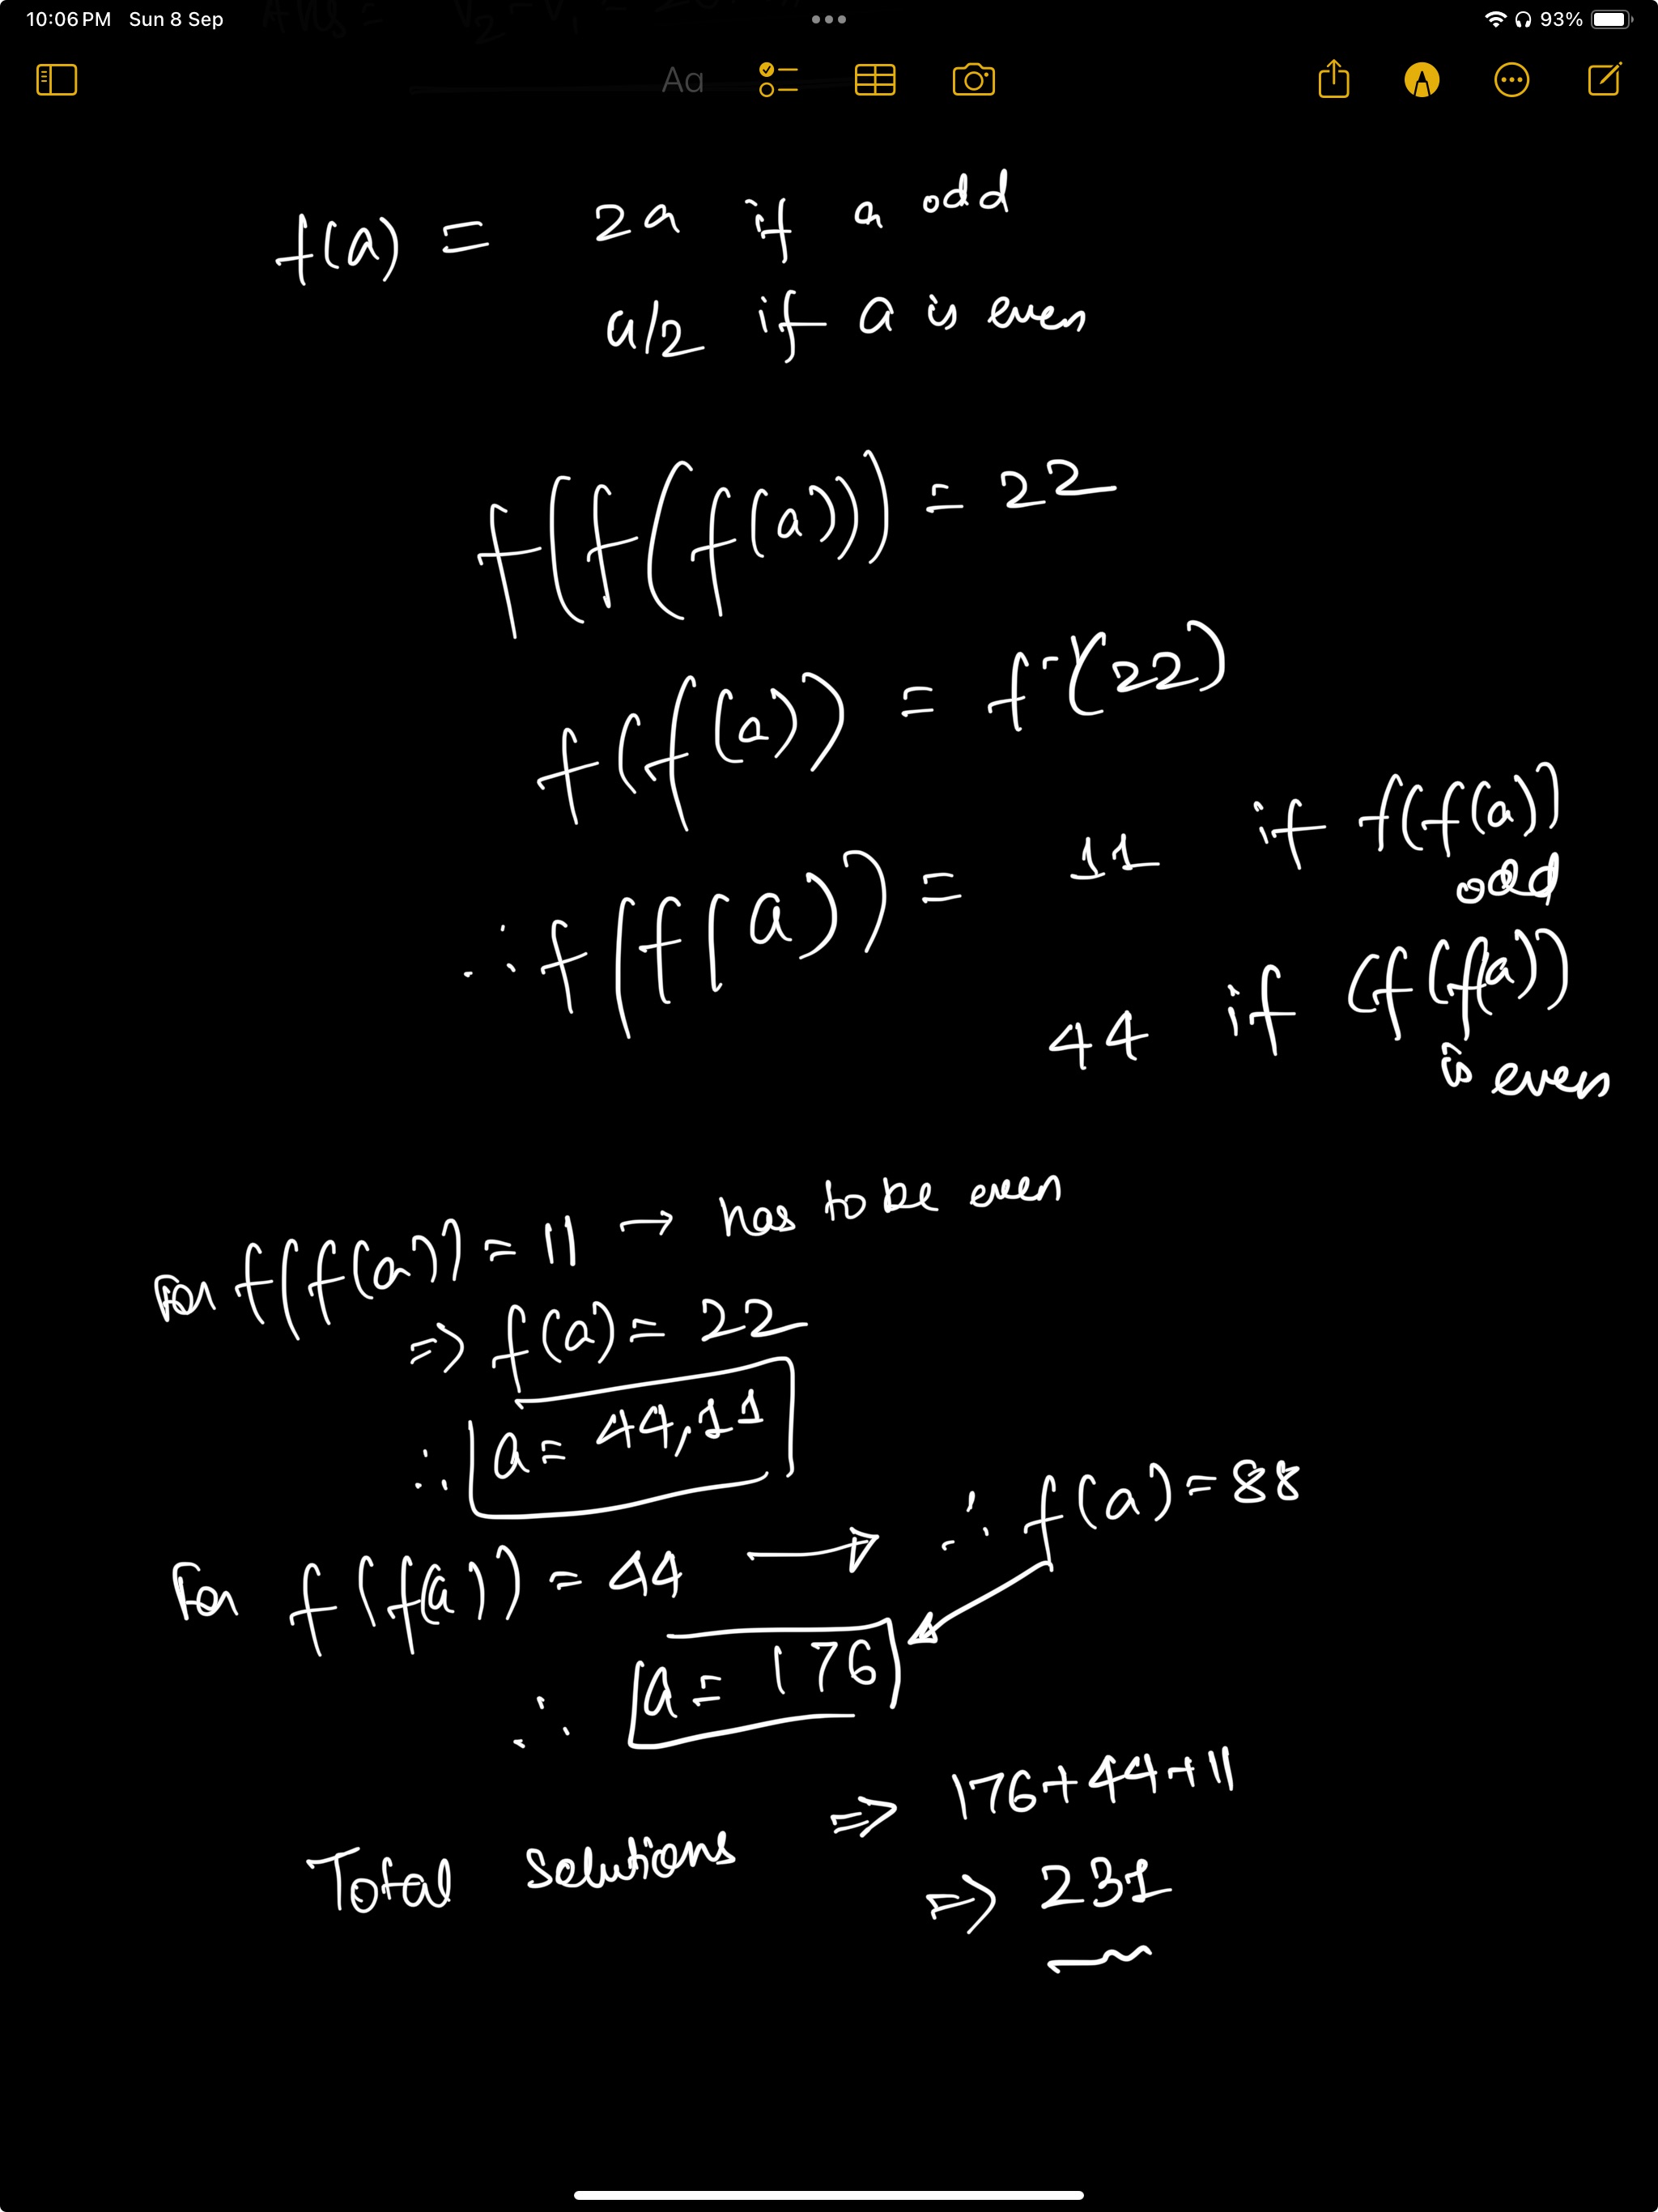 10:06 PM Sun 8 Sep 93%
Aa
f(a) = 2a if a odd
a/2 if a is even
f(f(f(a))) = 22
f(f(a)) = f⁻¹(22)
∴ f(f(a)) = 11 if f(f(a)) odd
44 if (f(f(a)) is even
For f(f(a)) = 11 → has to be even
⇒ f(a) = 22
∴ a = 44,11
For f(f(a)) = 44 → ∴ f(a) = 88
∴ a = 176
Total solutions ⇒ 176+44+11
⇒ 231